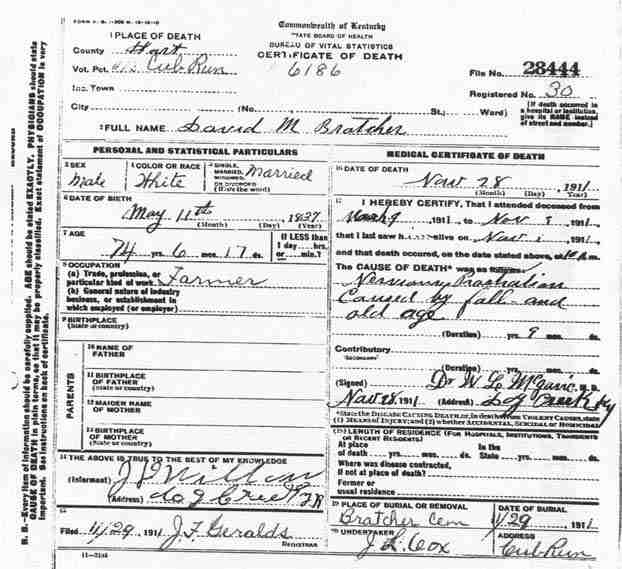 FORM V. S. 1-
Commonwealth of Kentucky
STATE BOARD OF HEALTH
BUREAU OF VITAL STATISTICS
CERTIFICATE OF DEATH
6186
1 PLACE OF DEATH
County Hart
Vot. Pct. Cub Run
Inc. Town
City (No. St.; Ward)
File No. 28444
Registered No. 30
[If death occurred in a hospital or institution, give its NAME instead of street and number.]
2 FULL NAME David M Bratcher
PERSONAL AND STATISTICAL PARTICULARS
3 SEX Male
4 COLOR OR RACE White
5 SINGLE, MARRIED, WIDOWED, OR DIVORCED (Write the word) Married
6 DATE OF BIRTH
May 11th, 1837
(Month) (Day) (Year)
7 AGE
74 yrs. 6 mos. 17 ds.
If LESS than 1 day hrs. or min.?
8 OCCUPATION
(a) Trade, profession, or particular kind of work Farmer
(b) General nature of industry business, or establishment in which employed (or employer)
9 BIRTHPLACE
(State or country)
PARENTS
10 NAME OF FATHER
11 BIRTHPLACE OF FATHER
(State or country)
12 MAIDEN NAME OF MOTHER
13 BIRTHPLACE OF MOTHER
(State or country)
14 THE ABOVE IS TRUE TO THE BEST OF MY KNOWLEDGE
(Informant)
(Address) Dog Creek
15
Filed 11/29, 1911 J. F. Geralds
REGISTRAR
11-3184
MEDICAL CERTIFICATE OF DEATH
16 DATE OF DEATH
Nov 28, 1911
(Month) (Day) (Year)
17 I HEREBY CERTIFY, That I attended deceased from
1911, to Nov 1911,
that I last saw h alive on Nov 1911,
and that death occurred, on the date stated above, at m.
The CAUSE OF DEATH* was as follows:
Nervous Prostration
Caused by fall and
old age
(Duration) yrs. 9 mos. ds.
Contributory
(SECONDARY)
(Duration) yrs. mos. ds.
(Signed) Dr W. L. M. D.
Nov 28, 1911 (Address) Dog Creek Ky
*State the DISEASE CAUSING DEATH, or, in deaths from VIOLENT CAUSES, state (1) MEANS OF INJURY; and (2) whether ACCIDENTAL, SUICIDAL or HOMICIDAL
18 LENGTH OF RESIDENCE (FOR HOSPITALS, INSTITUTIONS, TRANSIENTS OR RECENT RESIDENTS)
At place of death yrs. mos. ds. In the State yrs. mos. ds.
Where was disease contracted, if not at place of death?
Former or usual residence
19 PLACE OF BURIAL OR REMOVAL
Bratcher Cem
DATE OF BURIAL
11/29 1911
20 UNDERTAKER
J. L. Cox
ADDRESS
Cub Run
N. B.—Every item of information should be carefully supplied. AGE should be stated EXACTLY. PHYSICIANS should state
CAUSE OF DEATH in plain terms, so that it may be properly classified. Exact statement of OCCUPATION is very
important. See instructions on back of certificate.